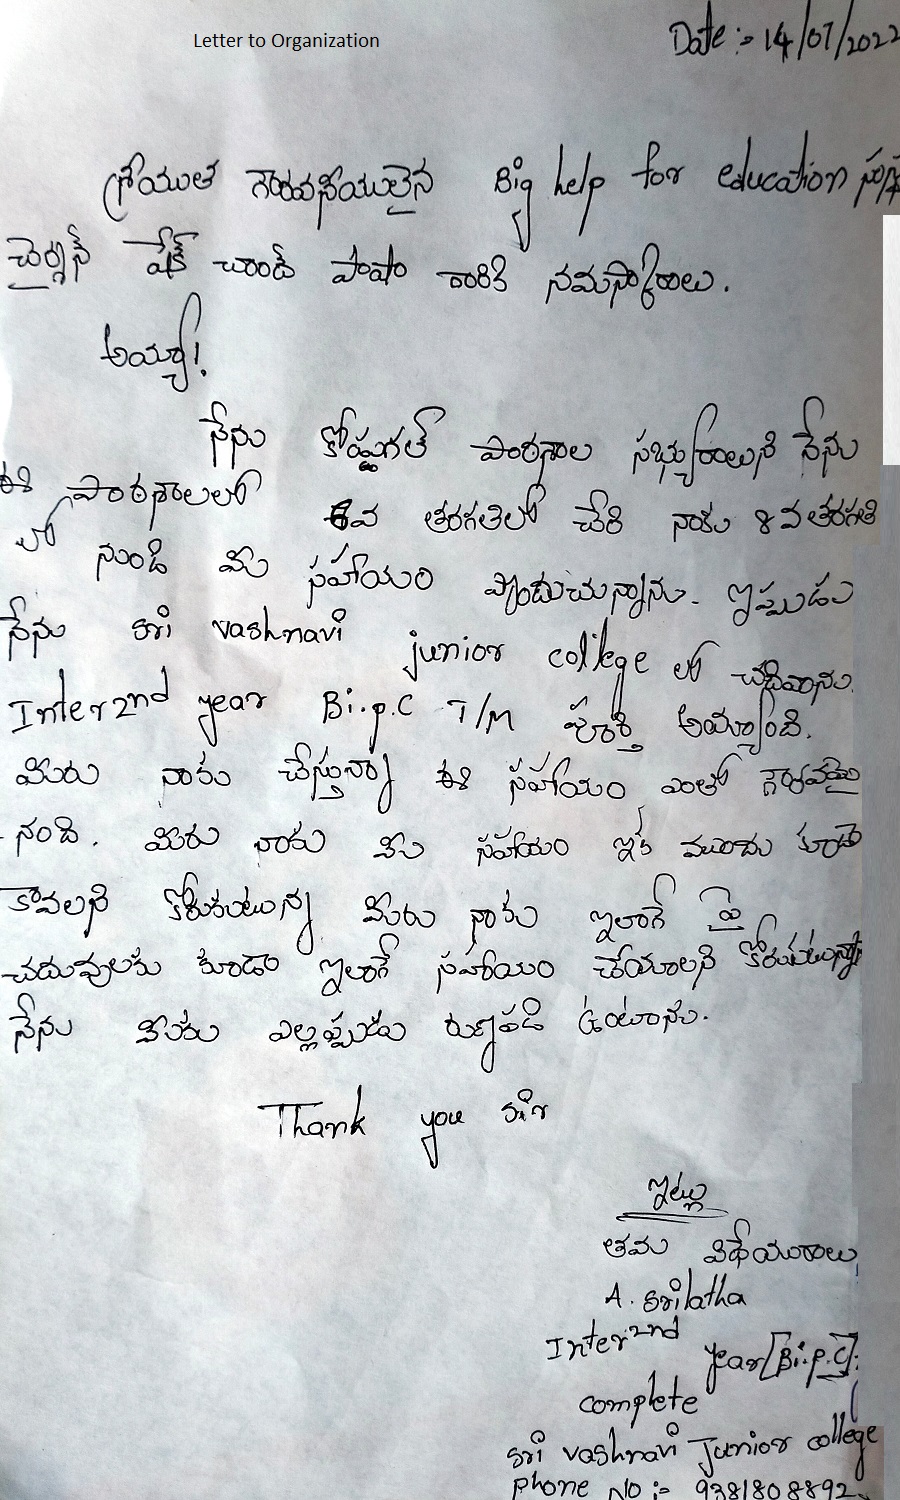 Letter to Organization
Date :- 14/07/2022
శ్రీయుత గౌరవనీయులైన Big help for education
చైర్మన్ షేక్ చాంద్ పాషా గారికి నమస్కారాలు.
అయ్యా!
నేను కోష్టగట్ పాఠశాల సభ్యురాలుని నేను
ఈ పాఠశాలలలో 6వ తరగతిలో చేరి నాకు 8వ తరగతి
లో నుండి మీ సహాయం పొందుచున్నాను. ఇప్పుడు
నేను sri vashnavi junior college లో చదివాను.
Inter 2nd year Bi.p.C T/M పూర్తి అయ్యింది.
మీరు నాకు చేస్తున్నా ఈ సహాయం ఎంతో
నంది. మీరు నాకు మీ సహాయం ఇక ముందు కూడా
కావలని కోరుకుంటున్న మీరు నాకు ఇలాగే పై
చదువులకు కూడా ఇలాగే సహాయం చేయాలని కోరుకుంటున్నా
నేను మీకు ఎల్లప్పుడు రుణపడి ఉంటాను.
Thank you sir
ఇట్లు
తమ విధేయురాలు
A. srilatha
Inter 2nd year [Bi.p.C].
complete
sri vashnavi Junior college
phone No :- 9381808892